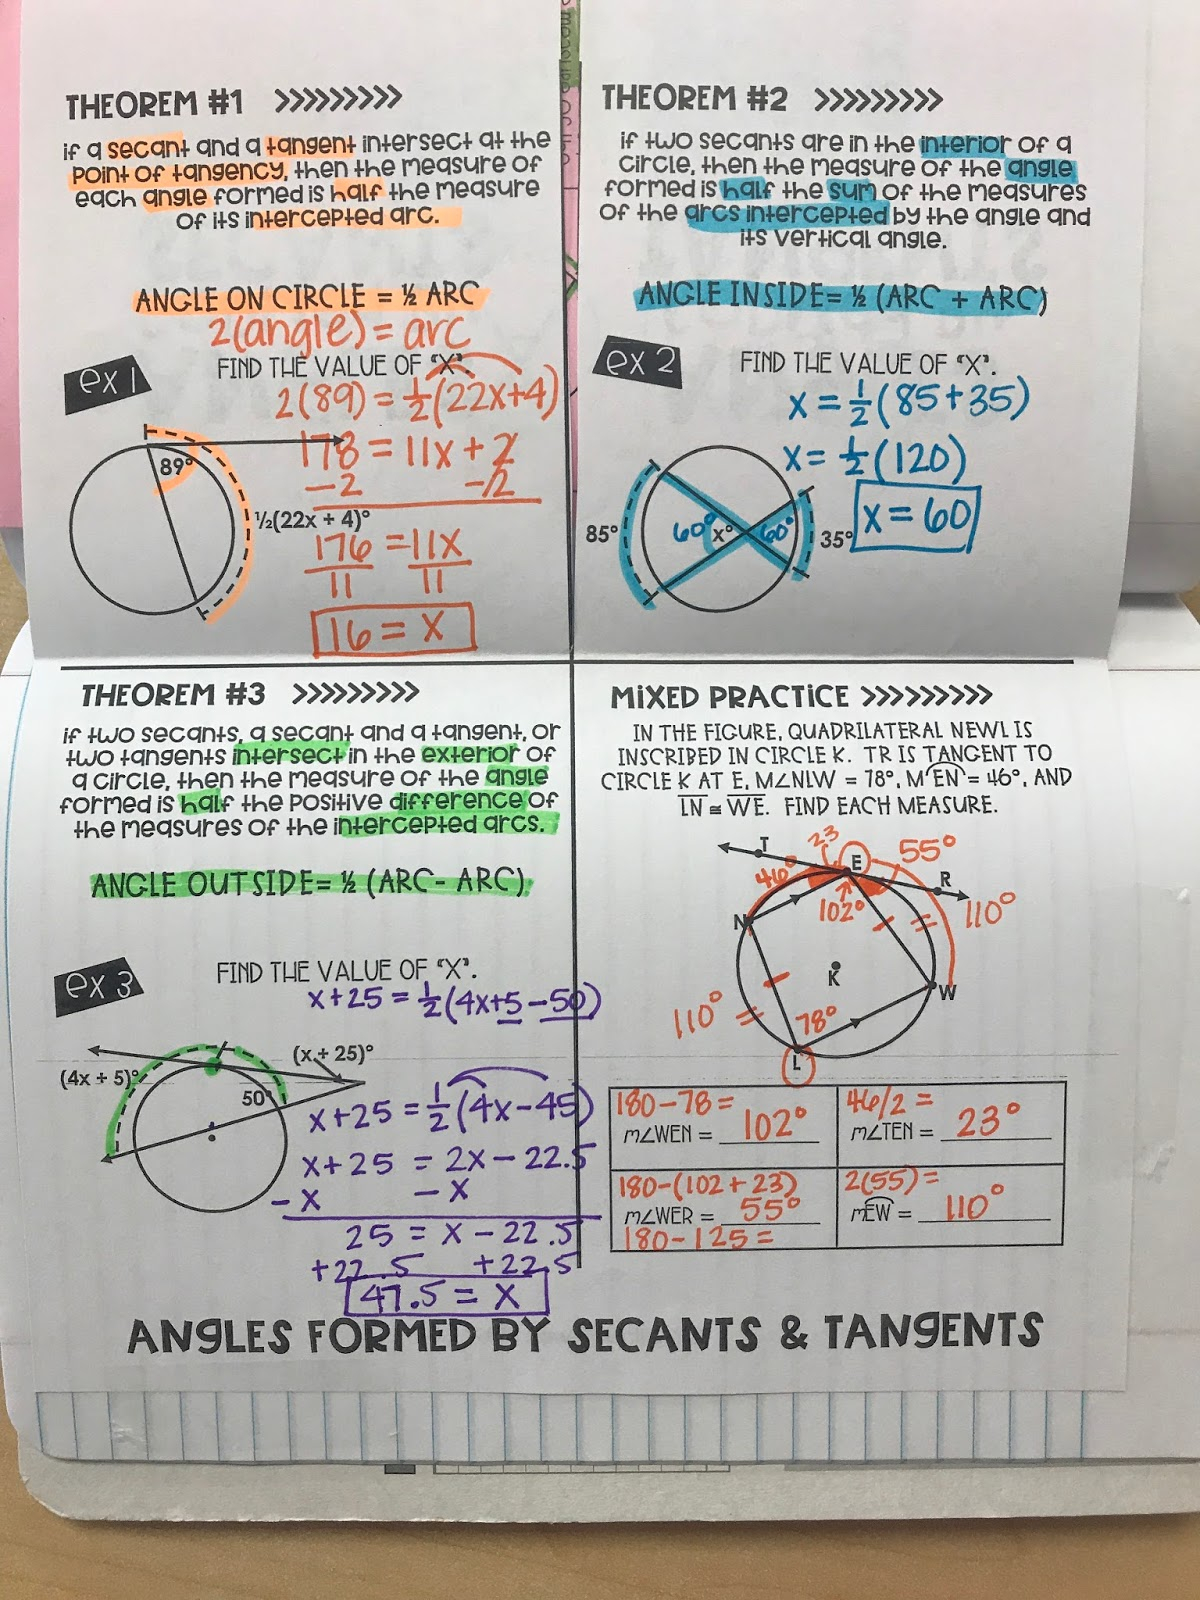 THEOREM #1 >>>>>>>>>
if a secant and a tangent intersect at the
point of tangency, then the measure of
each angle formed is half the measure
of its intercepted arc.
ANGLE ON CIRCLE = ½ ARC
2(angle) = arc
ex 1
FIND THE VALUE OF "X".
2(89) = ½(22x+4)
178 = 11x + 2
-2 -2
176 = 11x
11 11
16 = x
89°
½(22x + 4)°
THEOREM #2 >>>>>>>>>
if two secants are in the interior of a
circle, then the measure of the angle
formed is half the sum of the measures
of the arcs intercepted by the angle and
its vertical angle.
ANGLE INSIDE= ½ (ARC + ARC)
ex 2
FIND THE VALUE OF "X".
x = ½(85+35)
x = ½(120)
x = 60
85°
60°
x°
60°
35°
THEOREM #3 >>>>>>>>>
if two secants, a secant and a tangent, or
two tangents intersect in the exterior of
a circle, then the measure of the angle
formed is half the positive difference of
the measures of the intercepted arcs.
ANGLE OUTSIDE= ½ (ARC- ARC)
ex 3
FIND THE VALUE OF "X".
x+25 = ½(4x+5-50)
(x + 25)°
(4x + 5)°
50°
x+25 = ½(4x-45)
x+25 = 2x-22.5
-x -x
25 = x-22.5
+22.5 +22.5
47.5 = x
MIXED PRACTICE >>>>>>>>>
IN THE FIGURE, QUADRILATERAL NEWL IS
INSCRIBED IN CIRCLE K. TR IS TANGENT TO
CIRCLE K AT E, M∠NLW = 78°, M EN = 46°, AND
LN ≅ WE. FIND EACH MEASURE.
23
T
E
55°
46°
R
102°
110°
N
K
W
110°
78°
L
180-78=
m∠WEN = 102°
46/2 =
m∠TEN = 23°
180-(102+23)
m∠WER = 55°
180-125=
2(55)=
mEW = 110°
ANGLES FORMED BY SECANTS & TANGENTS